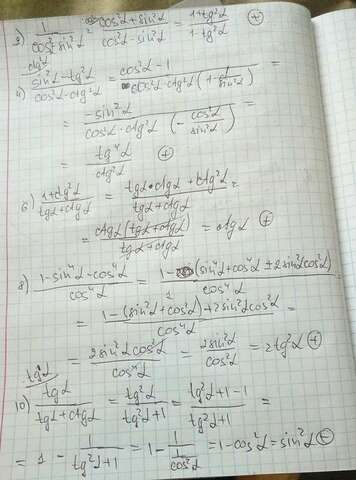 3) 1/(cos²α-sin²α) = (cos²α+sin²α)/(cos²α-sin²α) = (1+tg²α)/(1-tg²α) (+)
4) (sin²α-tg²α)/(cos²α-ctg²α) = (cos²α-1)/
= -sin²α/(cos²α·ctg²α) (-cos²α/sin²α) =
= tg⁴α/ctg²α (+)
6) (1+ctg²α)/(tgα+ctgα) = (tgα·ctgα+ctg²α)/(tgα+ctgα) =
= ctgα(tgα+ctgα)/(tgα+ctgα) = ctgα (+)
8) (1-sin⁴α-cos⁴α)/cos⁴α = (1-(sin⁴α+cos⁴α±2sin²αcos²α))/cos⁴α
= (1-(sin²α+cos²α)+2sin²αcos²α)/cos⁴α =
= 2sin²αcos²α/cos⁴α = 2sin²α/cos²α = 2tg²α (+)
tgα
10) tgα/(tgα+ctgα) = tg²α/(tg²α+1) = (tg²α+1-1)/(tg²α+1) =
= 1 - 1/(tg²α+1) = 1 - 1/(1/cos²α) = 1-cos²α = sin²α (+)